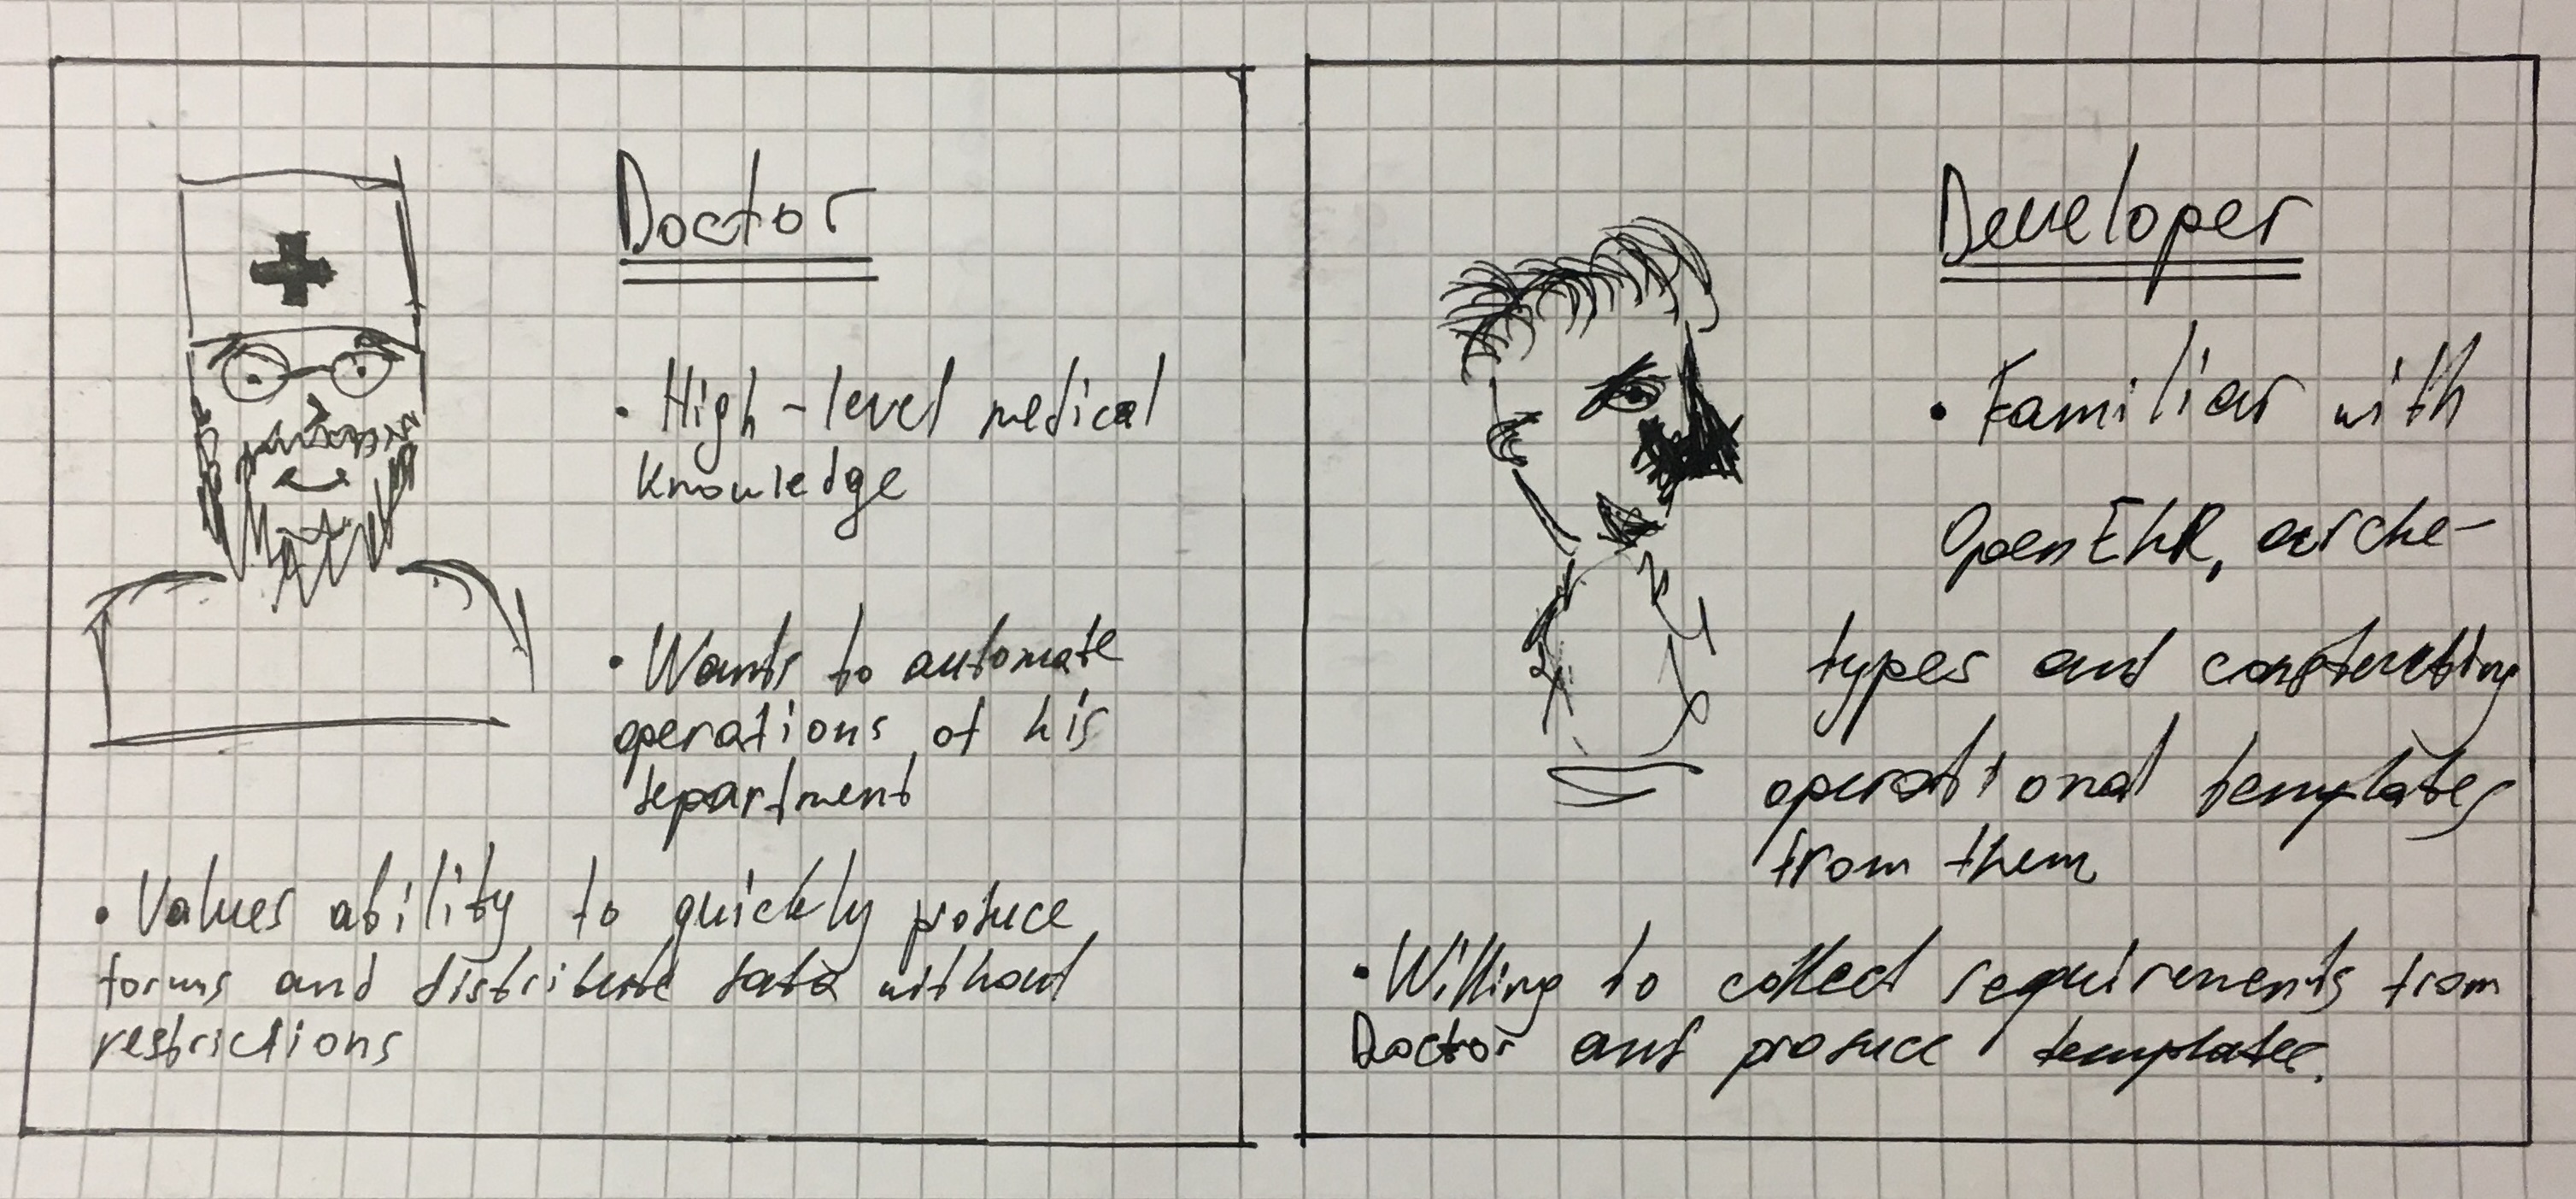 Doctor
• High-level medical
knowledge
• Wants to automate
operations of his
department
• Values ability to quickly produce
forms and distribute data without
restrictions
Developer
• Familiar with
OpenEhR, arche-
types and constructing
operational templates
from them
• Willing to collect requirements from
Doctor and produce templates.